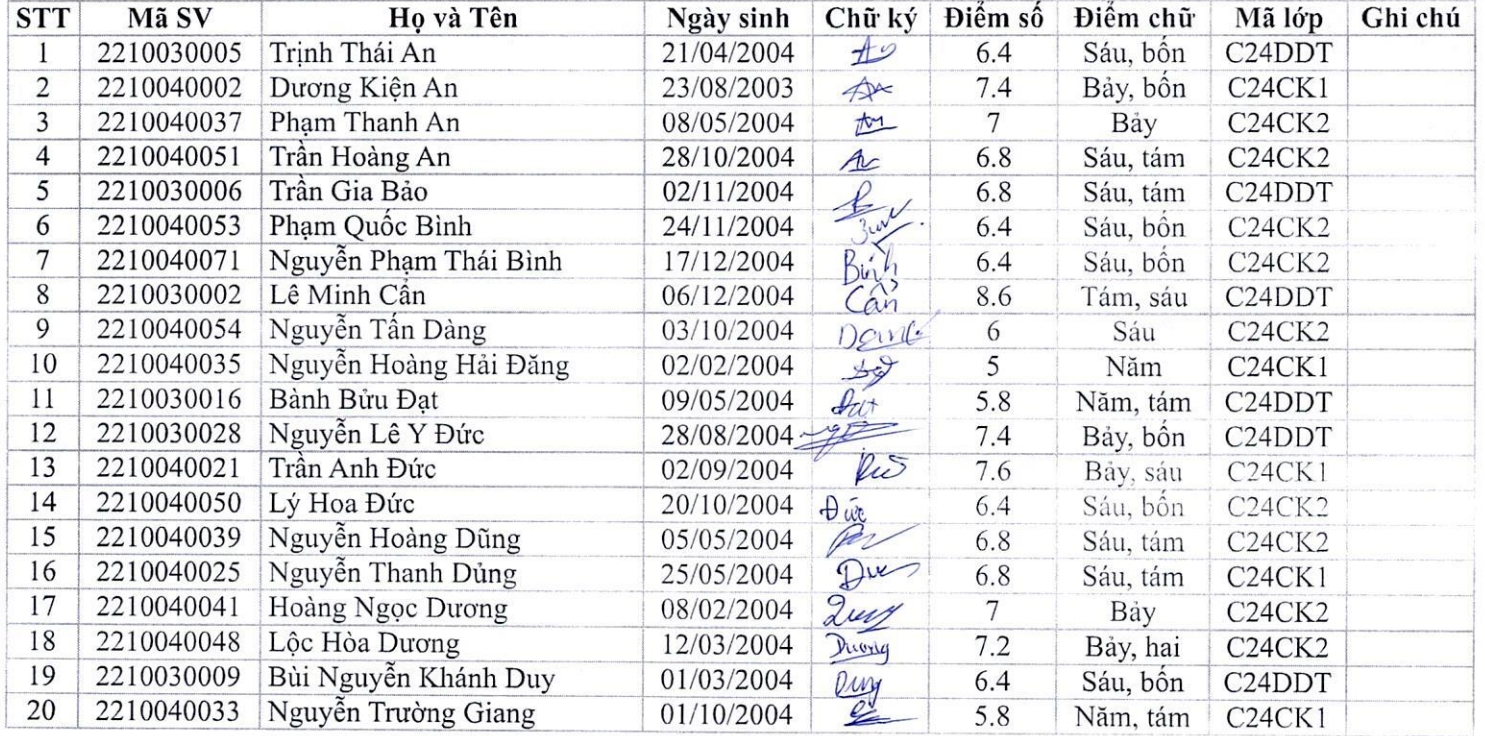 STT Mã SV Họ và Tên Ngày sinh Chữ ký Điểm số Điểm chữ Mã lớp Ghi chú
1 2210030005 Trịnh Thái An 21/04/2004 An 6.4 Sáu, bốn C24DDT
2 2210040002 Dương Kiện An 23/08/2003 7.4 Bảy, bốn C24CK1
3 2210040037 Phạm Thanh An 08/05/2004 An 7 Bảy C24CK2
4 2210040051 Trần Hoàng An 28/10/2004 6.8 Sáu, tám C24CK2
5 2210030006 Trần Gia Bảo 02/11/2004 6.8 Sáu, tám C24DDT
6 2210040053 Phạm Quốc Bình 24/11/2004 6.4 Sáu, bốn C24CK2
7 2210040071 Nguyễn Phạm Thái Bình 17/12/2004 Bình 6.4 Sáu, bốn C24CK2
8 2210030002 Lê Minh Cẩn 06/12/2004 Cẩn 8.6 Tám, sáu C24DDT
9 2210040054 Nguyễn Tấn Dàng 03/10/2004 6 Sáu C24CK2
10 2210040035 Nguyễn Hoàng Hải Đăng 02/02/2004 5 Năm C24CK1
11 2210030016 Bành Bửu Đạt 09/05/2004 Đạt 5.8 Năm, tám C24DDT
12 2210030028 Nguyễn Lê Y Đức 28/08/2004 7.4 Bảy, bốn C24DDT
13 2210040021 Trần Anh Đức 02/09/2004 7.6 Bảy, sáu C24CK1
14 2210040050 Lý Hoa Đức 20/10/2004 Đức 6.4 Sáu, bốn C24CK2
15 2210040039 Nguyễn Hoàng Dũng 05/05/2004 6.8 Sáu, tám C24CK2
16 2210040025 Nguyễn Thanh Dủng 25/05/2004 6.8 Sáu, tám C24CK1
17 2210040041 Hoàng Ngọc Dương 08/02/2004 7 Bảy C24CK2
18 2210040048 Lộc Hòa Dương 12/03/2004 Dương 7.2 Bảy, hai C24CK2
19 2210030009 Bùi Nguyễn Khánh Duy 01/03/2004 Duy 6.4 Sáu, bốn C24DDT
20 2210040033 Nguyễn Trường Giang 01/10/2004 5.8 Năm, tám C24CK1